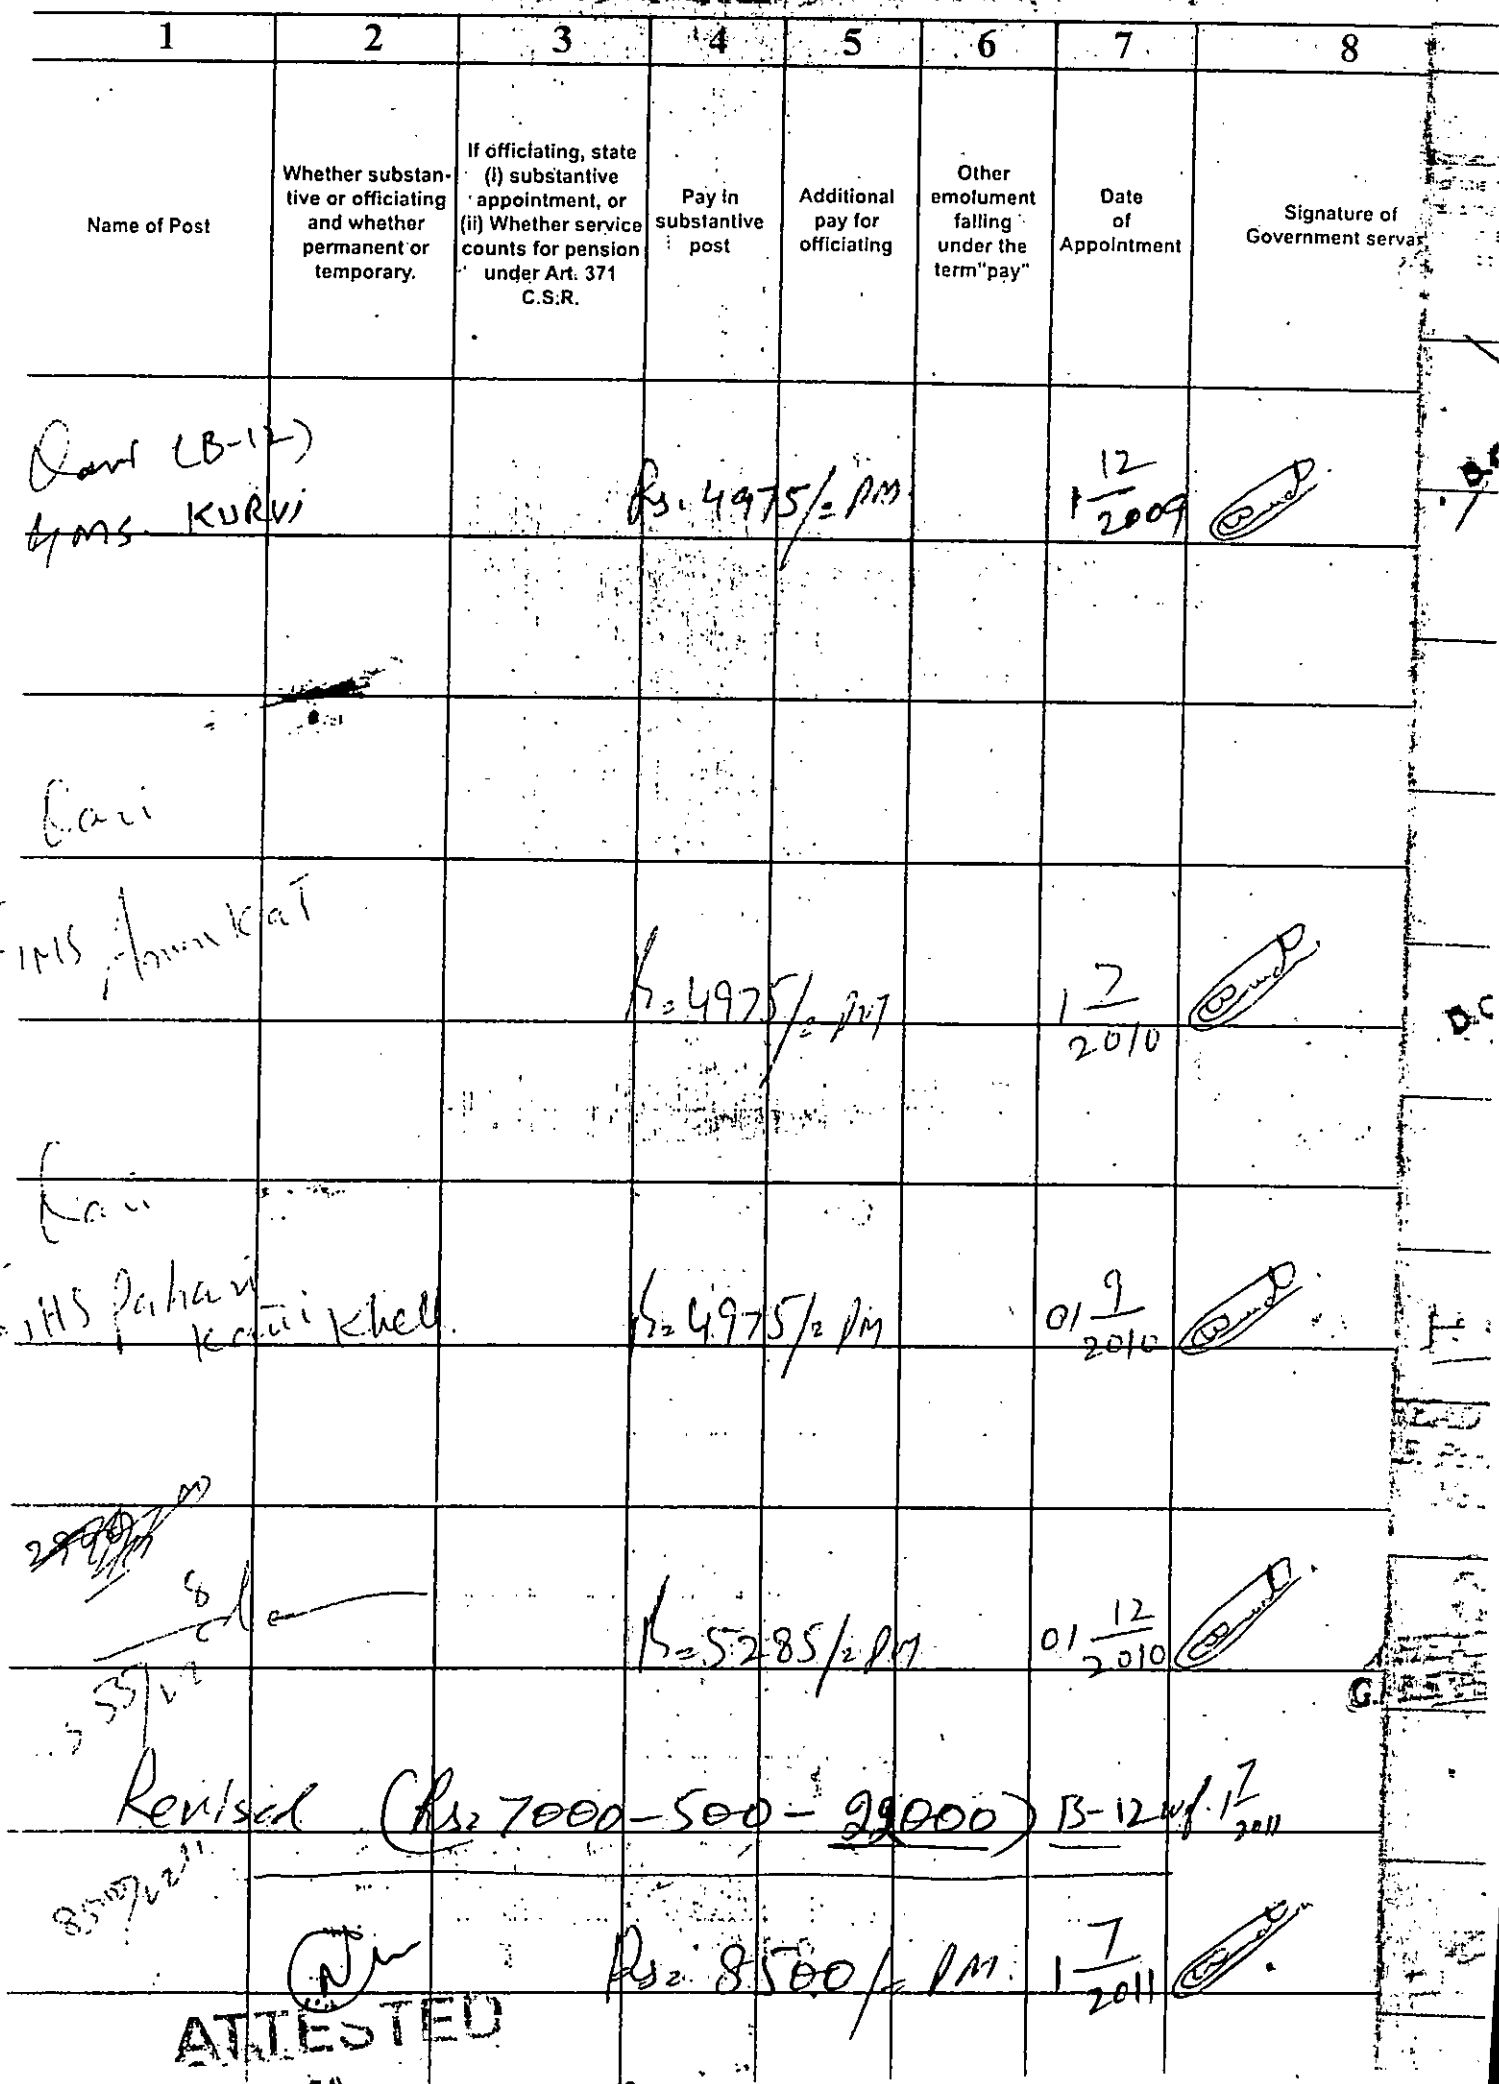 1 2 3 4 5 6 7 8
Name of Post
Whether substan-
tive or officiating
and whether
permanent or
temporary.
If officiating, state
(i) substantive
appointment, or
(ii) Whether service
counts for pension
under Art. 371
C.S.R.
Pay in
substantive
post
Additional
pay for
officiating
Other
emolument
falling
under the
term"pay"
Date
of
Appointment
Signature of
Government serva
(B-12)
GMS. KURVI
Rs. 4975/= PM
1 12/2009
Qari
Rs=4975/= PM
1 7/2010
Pahari
Khell
Rs=4975/= PM
01 9/2010
Rs=5285/= PM
01 12/2010
Revised (Rs= 7000-500-22000) B-12 wf. 1 7/2011
Rs= 8500/= PM.
1 7/2011
ATTESTED